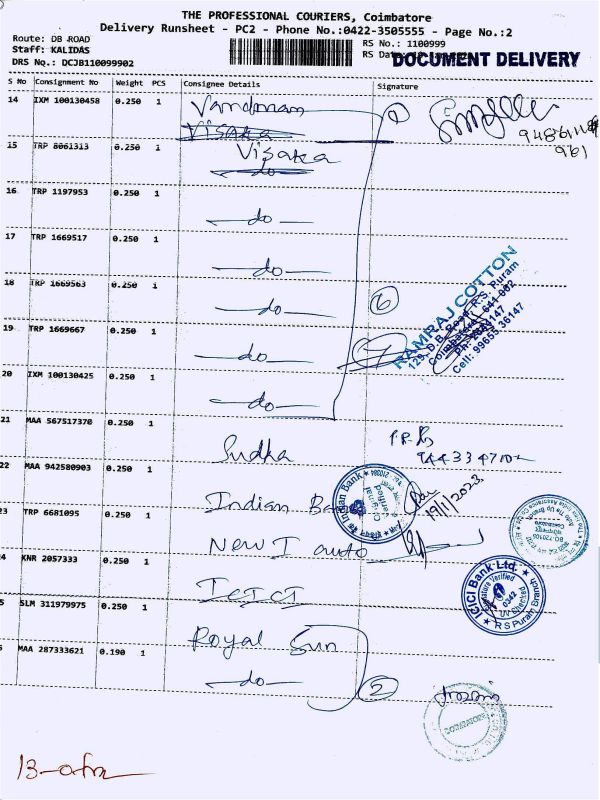 THE PROFESSIONAL COURIERS, Coimbatore
Delivery Runsheet - PC2 - Phone No.:0422-3505555 - Page No.:2
Route: DB ROAD
Staff: KALIDAS
DRS No.: DCJB110099902
RS No.: 1100999
RS Da
DOCUMENT DELIVERY
S No Consignment No Weight PCS Consignee Details Signature
14 IXM 100130458 0.250 1 Vandman
Visaka
94861
961
15 TRP 8061313 0.250 1 Visaka
do
16 TRP 1197953 0.250 1 do
17 TRP 1669517 0.250 1 do
18 TRP 1669563 0.250 1 do 6
19 TRP 1669667 0.250 1 do
20 IXM 100130425 0.250 1 do
RAMRAJ COTTON
129, D.B. Road, R.S. Puram
Coimbatore - 641 002
Cell: 99655 36147
21 MAA 567517370 0.250 1 Sudha
22 MAA 942580903 0.250 1 Indian Bank
Indian Bank
19/1/2023
23 TRP 6681095 0.250 1 New I auto
KNR 2057333 0.250 1 ICICI
ICICI Bank Ltd.
Signature Verified
0342
R S Puram Branch
SLM 311979975 0.250 1 Royal Sun
MAA 287333621 0.190 1 do 2
COIMBATORE